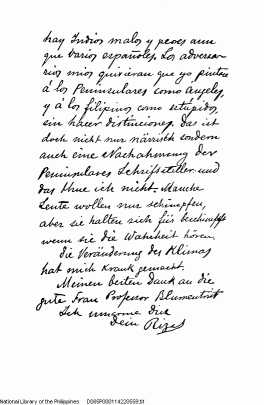 hay Indios malos y peores aun
que varios españoles. Los adversa-
rios mios quisieran que yo pintase
á los Peninsulares como Angeles,
y á los filipinos como estúpidos,
sin hacer distinciones. Das ist
doch nicht nur närrisch sondern
auch eine Nachahmung der
Peninsulares Schriftsteller und
das thue ich nicht. Manche
Leute wollen nur schimpfen,
aber sie halten sich für beschimpft
wenn sie die Wahrheit hören.
die Veränderung des Klimas
hat mich krank gemacht.
Meinen besten Dank an die
gute Frau Professor Blumentritt
Ich umarme Dich
Dein Rizal
National Library of the Philippines